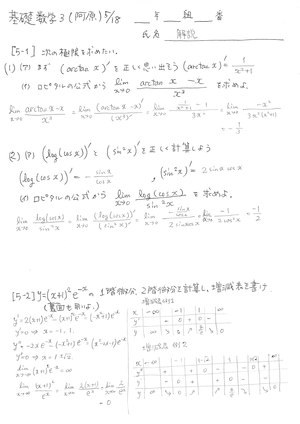 基礎数学3 (阿原) 5/18 年 組 番
氏名 解説
[5-1] 次の極限を求めたい。
(1) (ア) まず (arctan x)' を正しく思い出そう (arctan x)' = 1/(x²+1)
(イ) ロピタルの公式から lim x→0 (arctan x - x)/x³ を求めよ。
lim x→0 (arctan x - x)/x³ = lim x→0 (arctan x - x)'/(x³)' = lim x→0 (1/(x²+1) - 1)/3x² = lim x→0 -x²/(3x²(x²+1))
= -1/3
(2) (ア) (log(cos x))' と (sin²x)' を正しく計算しよう
(log(cos x))' = - sin x/cos x , (sin²x)' = 2 sin x cos x
(イ) ロピタルの公式から lim x→0 log(cos x)/sin²x を求めよ。
lim x→0 log(cos x)/sin²x = lim x→0 (log(cos x))'/(sin²x)' = lim x→0 (- sin x/cos x)/(2 sin x cos x) = lim x→0 -1/(2cos²x) = -1/2
[5-2] y=(x+1)² e^-x の 1階微分、2階微分を計算し、増減表を書け
y' = 2(x+1)e^-x - (x+1)² e^-x = (-x²+1)e^-x
y'=0 ⇒ x = -1, 1.
y'' = -2x e^-x - (-x²+1)e^-x = (x²-2x-1)e^-x
y''=0 ⇒ x = 1±√2.
lim x→-∞ (x+1)² e^-x = ∞
lim x→∞ (x+1)²/e^x = lim x→∞ 2(x+1)/e^x = lim x→∞ 2/e^x
= 0